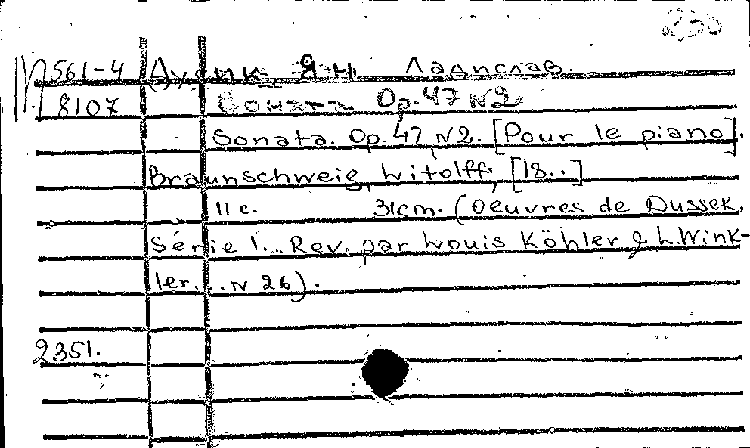 250
М561-4 Дусик Ян Ладислав.
8107 Соната Op.47 N2
Sonata. Op.47, N2. [Pour le piano].
Braunschweig, Litolff, [18..]
11 с. 31cm. (Oeuvres de Dussek,
Série 1... Rev. par Louis Köhler & L. Wink-
ler. . . N 26).
2351.